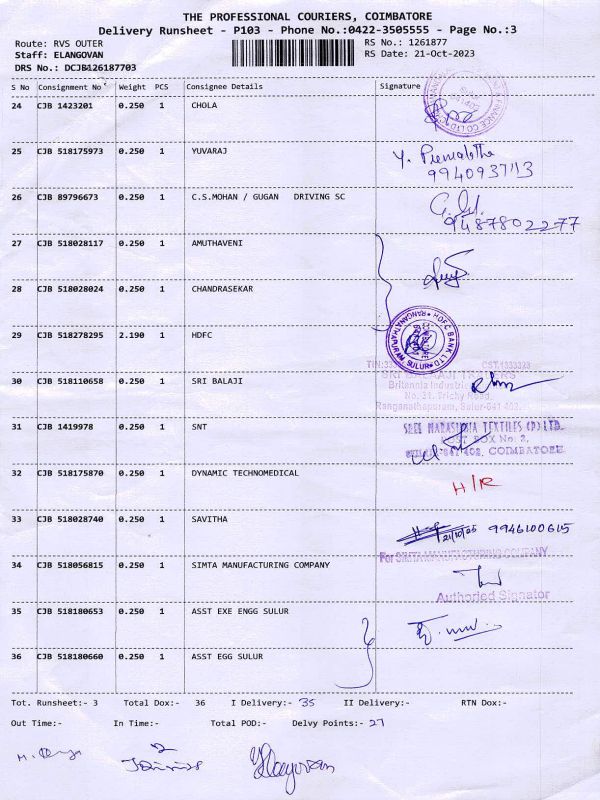 THE PROFESSIONAL COURIERS, COIMBATORE
Delivery Runsheet - P103 - Phone No.:0422-3505555 - Page No.:3
Route: RVS OUTER RS No.: 1261877
Staff: ELANGOVAN RS Date: 21-Oct-2023
DRS No.: DCJB126187703
S No Consignment No Weight PCS Consignee Details Signature
24 CJB 1423201 0.250 1 CHOLA
25 CJB 518175973 0.250 1 YUVARAJ Y. Premalatha
26 CJB 89796673 0.250 1 C.S.MOHAN / GUGAN DRIVING SC
9487802277
27 CJB 518028117 0.250 1 AMUTHAVENI
28 CJB 518028024 0.250 1 CHANDRASEKAR
29 CJB 518278295 2.190 1 HDFC HDFC BANK LTD RANGANATHAPURAM SULUR
CST:1333323
Britannia
30 CJB 518110658 0.250 1 SRI BALAJI No. 31, Trichy Road,
Ranganathapuram, Sulur-641 402.
31 CJB 1419978 0.250 1 SNT SREE NARASIMHA TEXTILES (P) LTD.
POST BOX No: 2,
641 402, COIMBATORE
32 CJB 518175870 0.250 1 DYNAMIC TECHNOMEDICAL H/R
33 CJB 518028740 0.250 1 SAVITHA 9946100615
For SIMTA MANUFACTURING COMPANY
34 CJB 518056815 0.250 1 SIMTA MANUFACTURING COMPANY
Authoried Signator
35 CJB 518180653 0.250 1 ASST EXE ENGG SULUR
36 CJB 518180660 0.250 1 ASST EGG SULUR
Tot. Runsheet:- 3 Total Dox:- 36 I Delivery:- 35 II Delivery:- RTN Dox:-
Out Time:- In Time:- Total POD:- Delvy Points:- 27